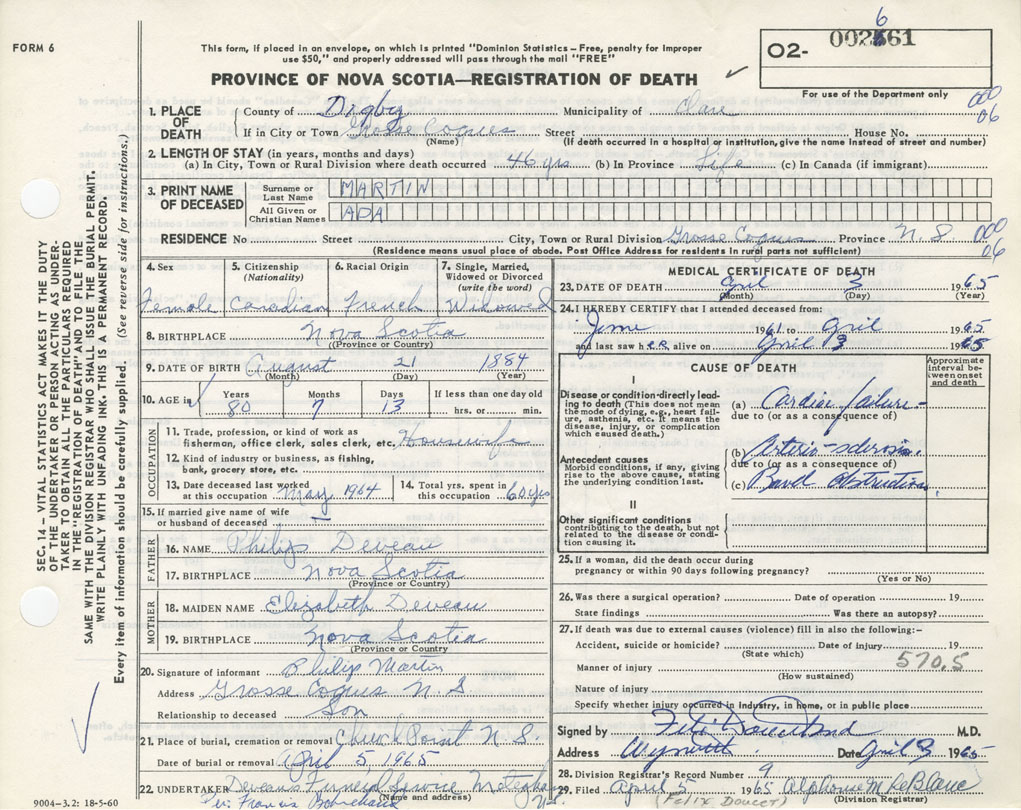 FORM 6
This form, if placed in an envelope, on which is printed "Dominion Statistics – Free, penalty for improper
use $50," and properly addressed will pass through the mail "FREE"
PROVINCE OF NOVA SCOTIA—REGISTRATION OF DEATH
6
O2- 002561
For use of the Department only
SEC. 14 – VITAL STATISTICS ACT MAKES IT THE DUTY
OF THE UNDERTAKER OR PERSON ACTING AS UNDER-
TAKER TO OBTAIN ALL THE PARTICULARS REQUIRED
IN THE "REGISTRATION OF DEATH" AND TO FILE THE
SAME WITH THE DIVISION REGISTRAR WHO SHALL ISSUE THE BURIAL PERMIT.
WRITE PLAINLY WITH UNFADING INK. THIS IS A PERMANENT RECORD.
Every item of information should be carefully supplied. (See reverse side for instructions.)
1. PLACE OF DEATH County of Digby Municipality of Clare 000
If in City or Town Grosse Coques Street House No. 06
(Name) (If death occurred in a hospital or institution, give the name instead of street and number)
2. LENGTH OF STAY (in years, months and days)
(a) In City, Town or Rural Division where death occurred 46 yrs (b) In Province Life (c) In Canada (if immigrant)
3. PRINT NAME OF DECEASED Surname or Last Name MARTIN
All Given or Christian Names ADA
RESIDENCE No Street City, Town or Rural Division Grosse Coques Province N.S 000
(Residence means usual place of abode. Post Office Address for residents in rural parts not sufficient) 06
4. Sex 5. Citizenship (Nationality) 6. Racial Origin 7. Single, Married, Widowed or Divorced (write the word)
Female Canadian French Widowed
8. BIRTHPLACE Nova Scotia
(Province or Country)
9. DATE OF BIRTH August 21 1884
(Month) (Day) (Year)
10. AGE in Years Months Days If less than one day old
80 7 13 hrs. or min.
OCCUPATION
11. Trade, profession, or kind of work as
fisherman, office clerk, sales clerk, etc. Housewife
12. Kind of industry or business, as fishing,
bank, grocery store, etc.
13. Date deceased last worked at this occupation May 1964 14. Total yrs. spent in this occupation 60 yrs
15. If married give name of wife
or husband of deceased —
FATHER
16. NAME Philip Deveau
17. BIRTHPLACE Nova Scotia
(Province or Country)
MOTHER
18. MAIDEN NAME Elizabeth Deveau
19. BIRTHPLACE Nova Scotia
(Province or Country)
20. Signature of informant Philip Martin
Address Grosse Coques N.S.
Relationship to deceased Son
21. Place of burial, cremation or removal Church Point N.S.
Date of burial or removal April 5, 1965
22. UNDERTAKER Deveau's Funeral Service
(Name and address)
Per Francis
9004–3.2: 18-5-60
MEDICAL CERTIFICATE OF DEATH
23. DATE OF DEATH April 3 1965
(Month) (Day) (Year)
24. I HEREBY CERTIFY that I attended deceased from:
June 1961 to April 1965
and last saw her alive on April 3 1965
CAUSE OF DEATH
Approximate interval be- tween onset and death
I
Disease or condition directly lead-
ing to death (This does not mean
the mode of dying, e.g., heart fail-
ure, asthenia, etc. It means the
disease, injury, or complication
which caused death.)
(a) Cardiac failure -
due to (or as a consequence of)
Antecedent causes
Morbid conditions, if any, giving
rise to the above cause, stating
the underlying condition last.
(b) Arterio-sclerosis.
due to (or as a consequence of)
(c) Bowel obstruction.
II
Other significant conditions
contributing to the death, but not
related to the disease or condi-
tion causing it.
25. If a woman, did the death occur during
pregnancy or within 90 days following pregnancy?
(Yes or No)
26. Was there a surgical operation? Date of operation 19
State findings Was there an autopsy?
27. If death was due to external causes (violence) fill in also the following:–
Accident, suicide or homicide? Date of injury 19
(State which)
570.5
Manner of injury
(How sustained)
Nature of injury
Specify whether injury occurred in industry, in home, or in public place
Signed by M.D.
Address Weymouth Date April 3 1965
28. Division Registrar's Record Number 9
29. Filed April 5 1965 Alphonse M LeBlanc
(FELIX DOUCET) (Division Registrar)